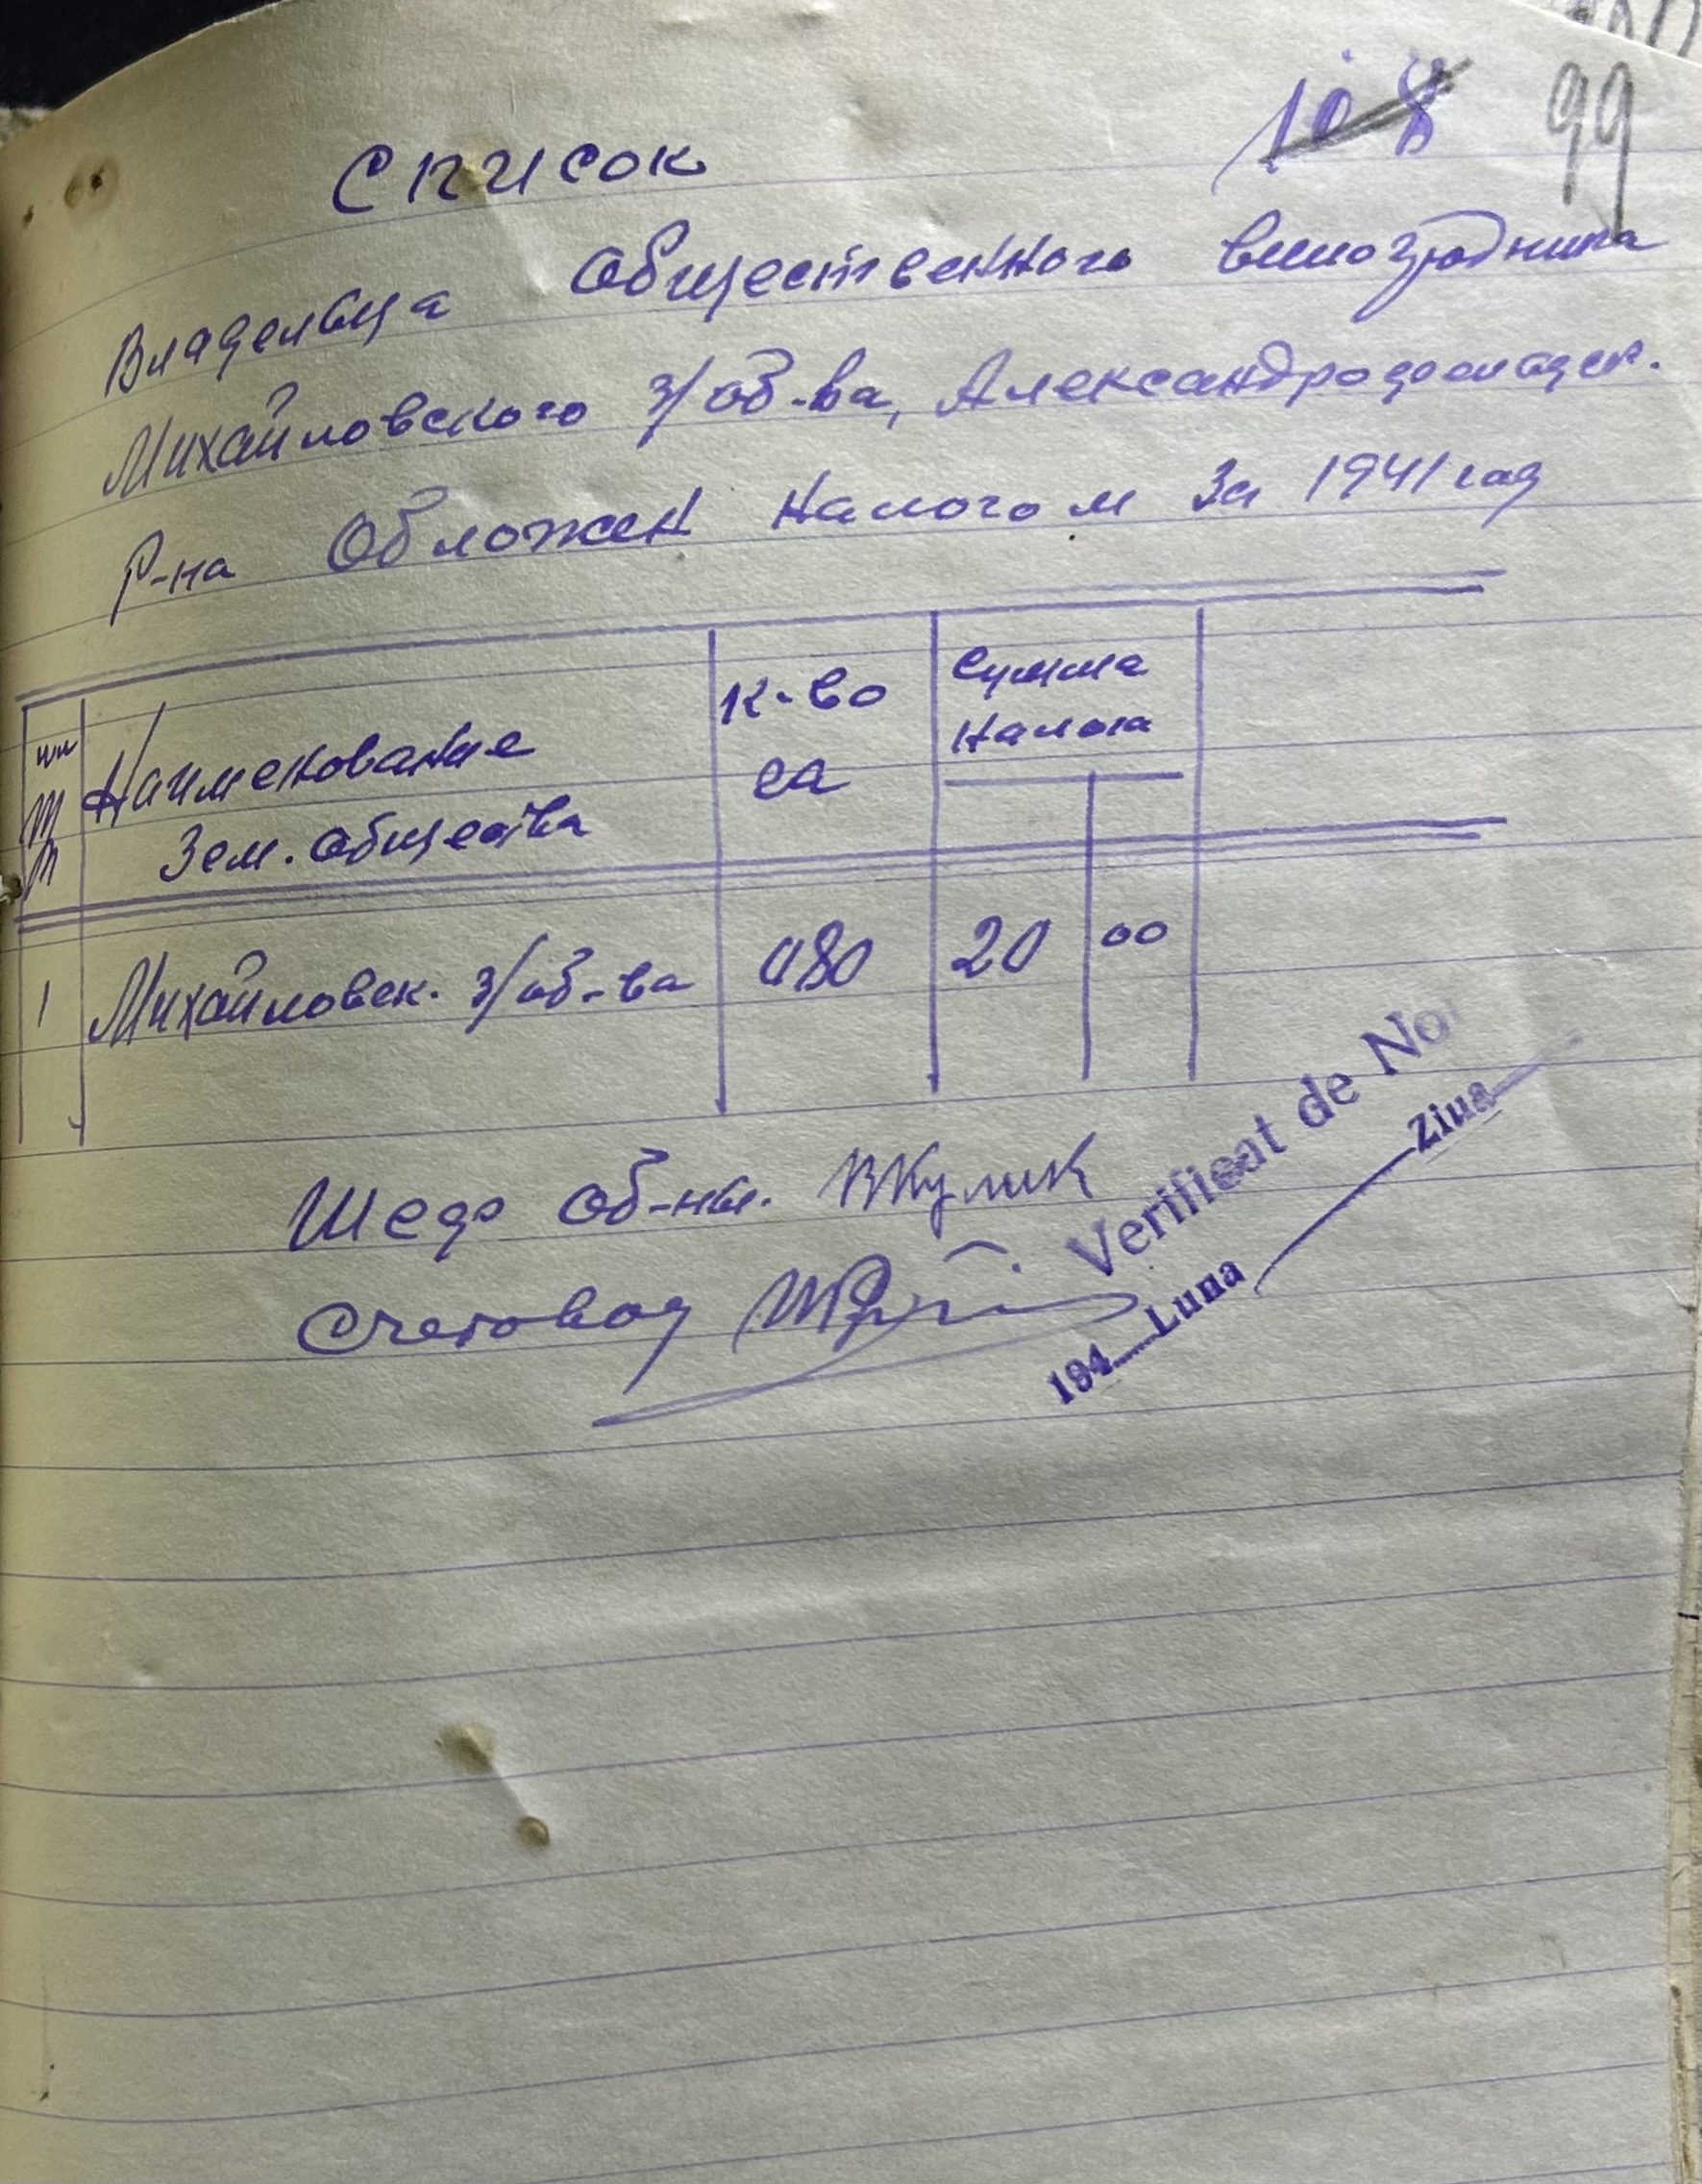 108 99
Список
Владельца Общественного виноградника
Михайловского з/об-ва, Александродоладск.
Р-на Обложен Налогом За 1941 год
Наименование
Зем. общества
К-во
га
Сумма
Налога
1 Михайловск. з/об-ва 080 20 00
Шедо об-ны. ВКулик
Счетовод
Verificat de No
194 Luna Ziua